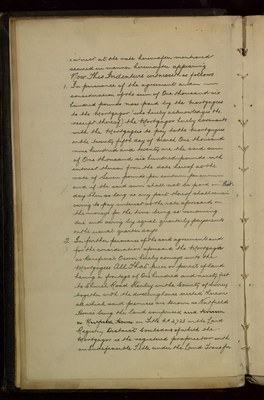 interest at the rate hereinafter mentioned
secured in manner hereinafter appearing
Now This Indenture witnesseth as follows
1. In pursuance of the agreement and in
consideration of the sum of One thousand six
hundred pounds now paid by the Mortgagee
to the Mortgagor (who hereby acknowledges the
receipt thereof) the Mortgagor hereby covenants
with the Mortgagee to pay to the Mortgagee
on the twenty first day of March One thousand
nine hundred and twenty one the said sum
of One thousand six hundred pounds with
interest thereon from the date hereof at the
rate of Seven pounds per centum per annum
and if the said sum shall not be paid on that
day then so long as any part thereof shall remain
owing to pay interest at the rate aforesaid on
the moneys for the time being so remaining
due and owing by equal quarterly payments
on the usual quarter days
2. In further pursuance of the said agreement and
for the consideration aforesaid the Mortgagor
as Beneficial Owner hereby conveys unto the
Mortgagee All That piece or parcel of land
having a frontage of One hundred and twenty feet
to Road in the County of
together with the dwellinghouse erected thereon
all which said premises are known as
House being the land comprised and
in Title No. in the Land
Registry District of which the
Mortgagor is the registered proprietor with
an Indefeasible Title under the Land Transfer